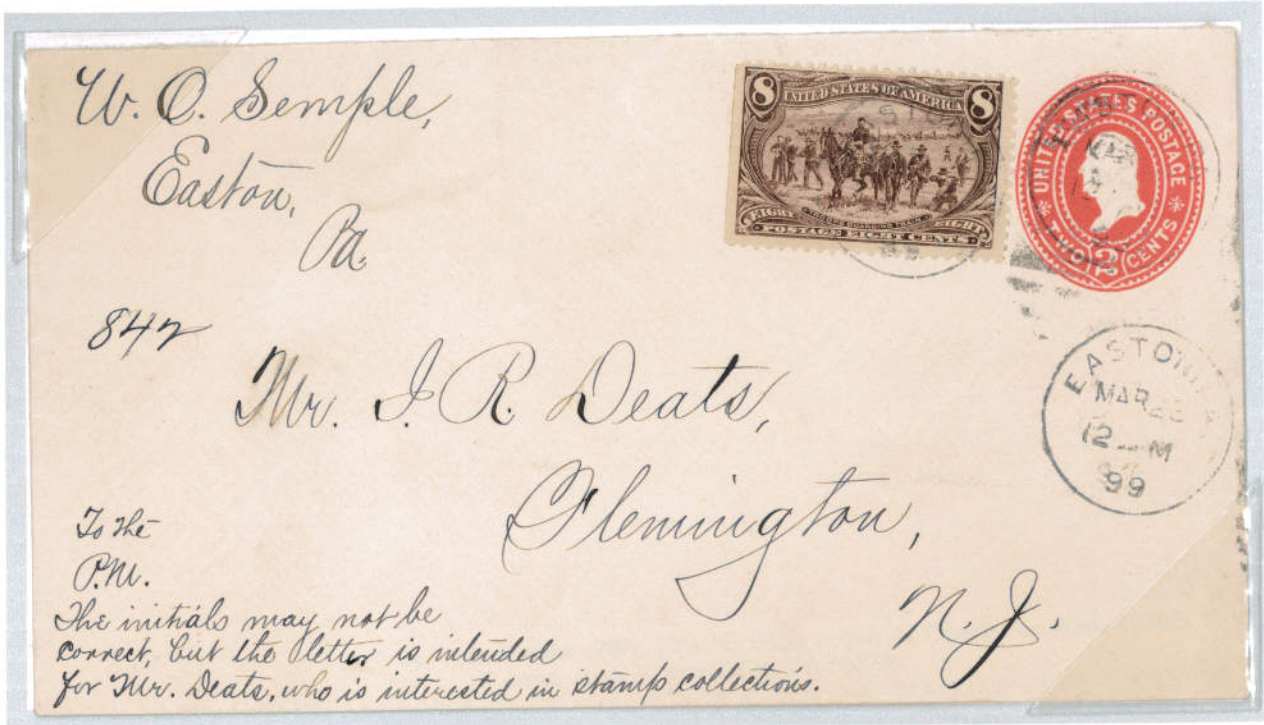 W. O. Semple,
Easton,
Pa.
8
UNITED STATES OF AMERICA
8
EIGHT
TROOPS GUARDING TRAIN
EIGHT
POSTAGE EIGHT CENTS
UNITED STATES POSTAGE
TWO 2 CENTS
842
Mr. I. R. Deats,
Flemington,
N. J.
EASTON
MAR
12 M
99
To the
P.M.
The initials may not be
correct, but the letter is intended
for Mr. Deats, who is interested in stamp collections.